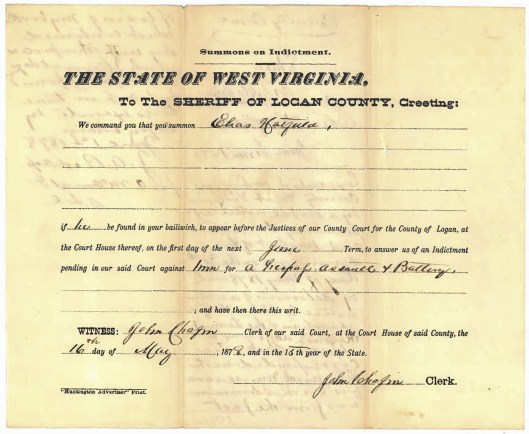 Summons on Indictment.
THE STATE OF WEST VIRGINIA,
To The SHERIFF OF LOGAN COUNTY, Greeting:
We command you that you summon Elias Hatfield,
if he be found in your bailiwick, to appear before the Justices of our County Court for the County of Logan, at
the Court House thereof, on the first day of the next June Term, to answer us of an Indictment
pending in our said Court against him for a Trespass assault & Battery.
; and have then there this writ.
WITNESS: John Chafin Clerk of our said Court, at the Court House of said County, the
16th day of May, 1878, and in the 15th year of the State.
John Chafin Clerk.
"Huntington Advertiser" Print.